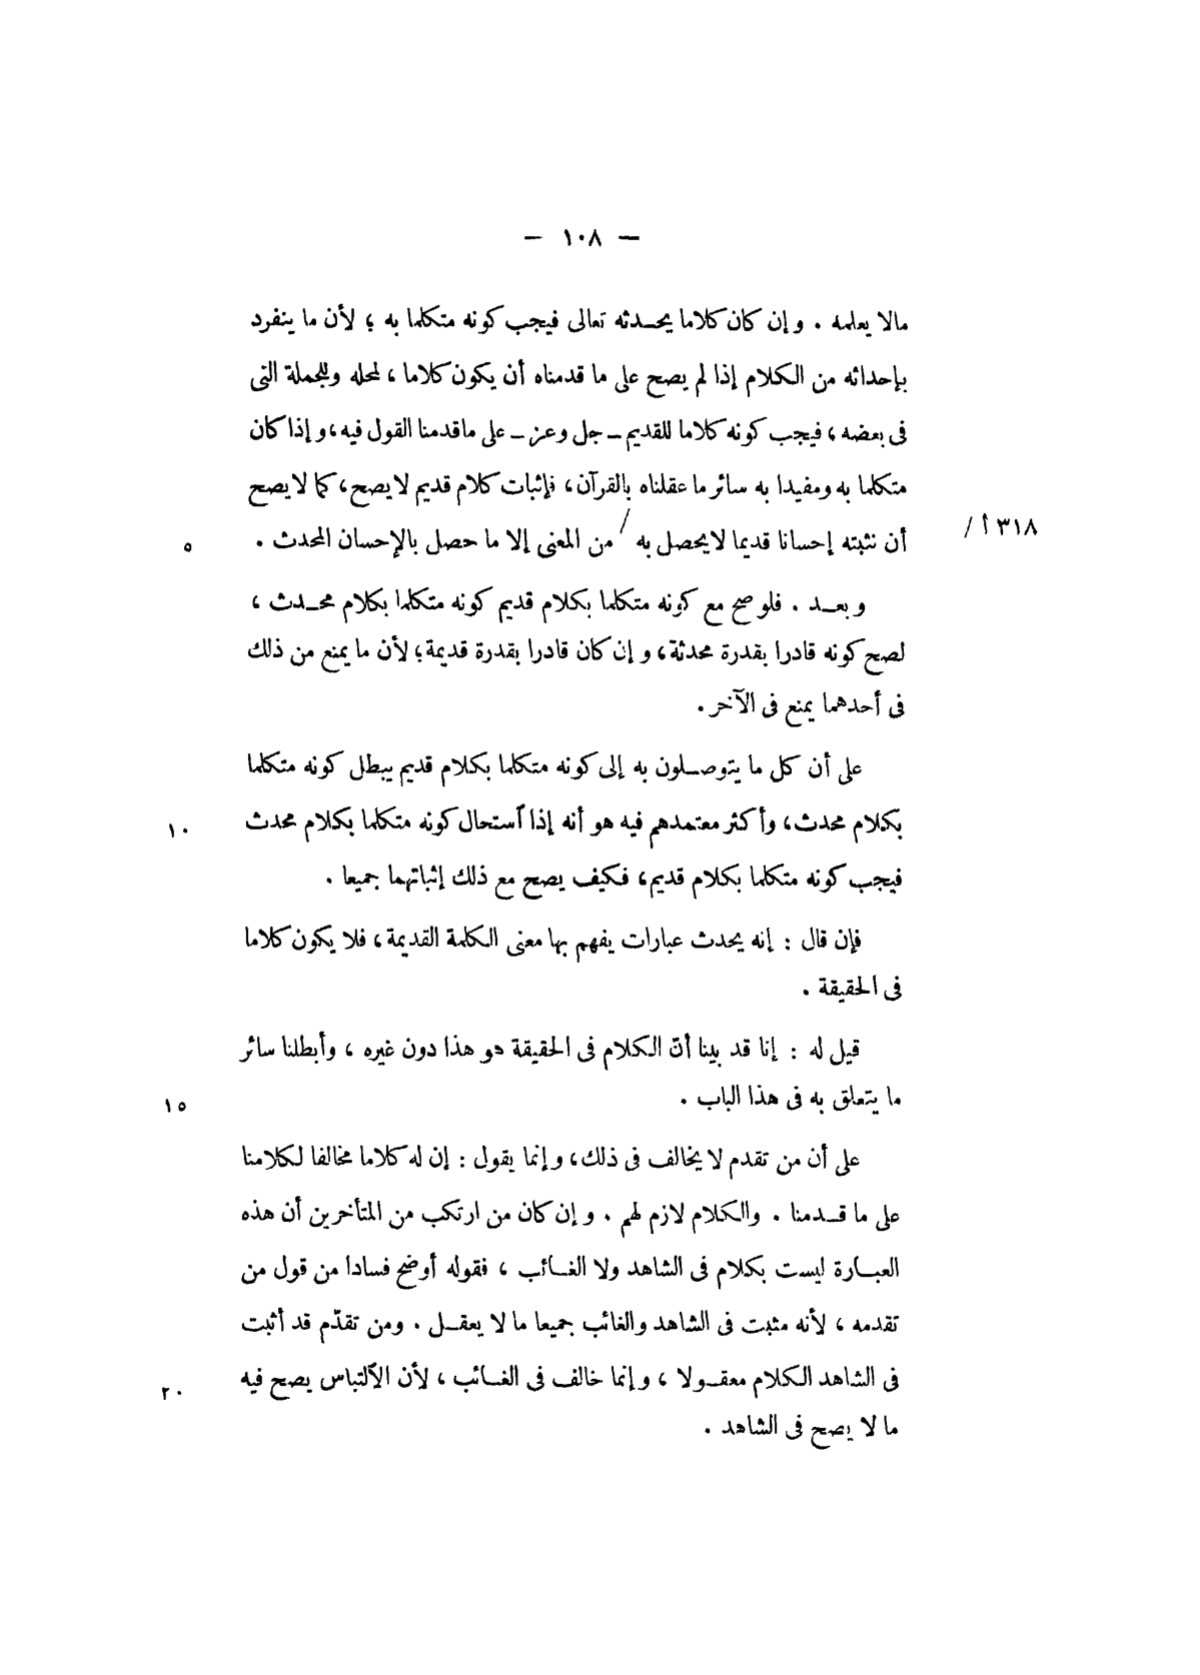 — ١٠٨ —
مالا يعلمه . و إن كان كلاما يحـدثه تعالى فيجب كونه متكلما به ؛ لأن ما ينفرد
بإحداثه من الكلام إذا لم يصح على ما قدمناه أن يكون كلاما ، لمحله وللجملة التى
فى بعضه ، فيجب كونه كلاما للقديم ــ جل وعز ــ على ماقدمنا القول فيه ، و إذا كان
متكلما به ومفيدا به سائر ما عقلناه بالقرآن ، فإثبات كلام قديم لا يصح ، كما لا يصح
٣١٨ أ /
أن نثبته إحسانا قديما لايحصل به / من المعنى إلا ما حصل بالإحسان المحدث .
٥
و بعـد . فلو صح مع كونه متكلما بكلام قديم كونه متكلما بكلام محـدث ،
لصح كونه قادرا بقدرة محدثة ، و إن كان قادرا بقدرة قديمة ؛ لأن ما يمنع من ذلك
فى أحدهما يمنع فى الآخر .
على أن كل ما يتوصـلون به إلى كونه متكلما بكلام قديم يبطل كونه متكلما
بكلام محدث ، وأكثر معتمدهم فيه هو أنه إذا ٱستحال كونه متكلما بكلام محدث
١٠
فيجب كونه متكلما بكلام قديم ، فكيف يصح مع ذلك إثباتهما جميعا .
فإن قال : إنه يحدث عبارات يفهم بها معنى الكلمة القديمة ، فلا يكون كلاما
فى الحقيقة .
قيل له : إنا قد بينا أنّ الكلام فى الحقيقة هو هذا دون غيره ، وأبطلنا سائر
ما يتعلق به فى هذا الباب .
١٥
على أن من تقدم لا يخالف فى ذلك ، و إنما يقول : إن له كلاما مخالفا لكلامنا
على ما قـدمنا . والكلام لازم لهم . و إن كان من ارتكب من المتأخرين أن هذه
العبـارة ليست بكلام فى الشاهد ولا الغـائب ، فقوله أوضح فسادا من قول من
تقدمه ، لأنه مثبت فى الشاهد والغائب جميعا ما لا يعقـل . ومن تقدّم قد أثبت
فى الشاهد الكلام معقـولا ، و إنما خالف فى الغـائب ، لأن الٱلتباس يصح فيه
٢٠
ما لا يصح فى الشاهد .